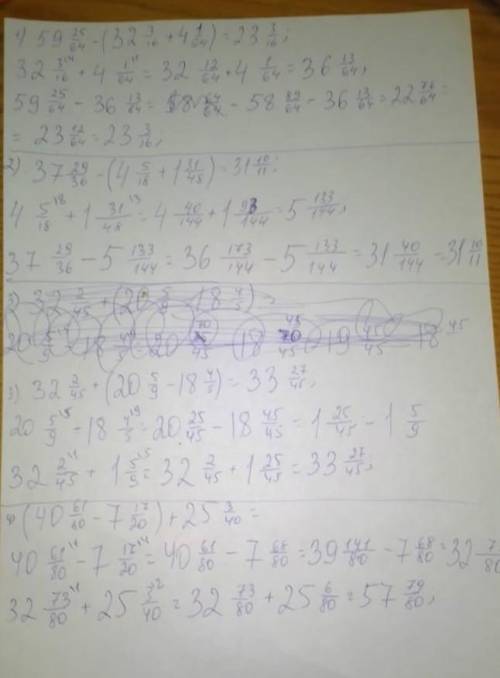 1) 59 25/64 - (32 3/16 + 4 1/64) = 23 3/16;
32 3/16 + 4 1/64 = 32 12/64 + 4 1/64 = 36 13/64;
59 25/64 - 36 13/64 = 58 89/64 - 36 13/64 = 22 76/64 =
= 23 12/64 = 23 3/16;
2) 37 29/36 - (4 5/18 + 1 31/48) = 31 10/11;
4 5/18 + 1 31/48 = 4 40/144 + 1 93/144 = 5 133/144;
37 29/36 - 5 133/144 = 36 173/144 - 5 133/144 = 31 40/144 = 31 10/11
3) 32 2/45 + (20 5/9 - 18 4/5) = 33 27/45;
20 5/9 - 18 4/5 = 20 25/45 - 18 45/45 = 1 25/45 - 1 5/9
32 2/45 + 1 5/9 = 32 2/45 + 1 25/45 = 33 27/45;
4) (40 61/80 - 7 17/20) + 25 3/40 =
40 61/80 - 7 17/20 = 40 61/80 - 7 68/80 = 39 141/80 - 7 68/80 = 32
32 73/80 + 25 3/40 = 32 73/80 + 25 6/80 = 57 79/80;